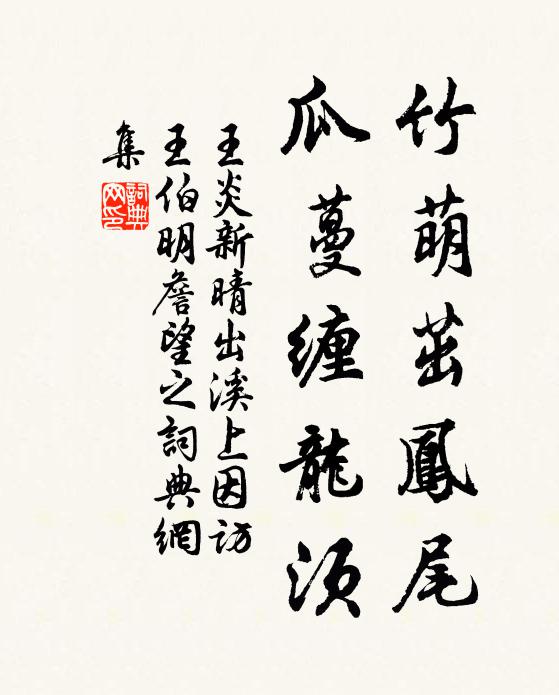 竹萌茁鳳尾
瓜蔓纏龍須
王炎新晴出溪上因訪
王伯明詹望之詞典網
集
詞典
网印